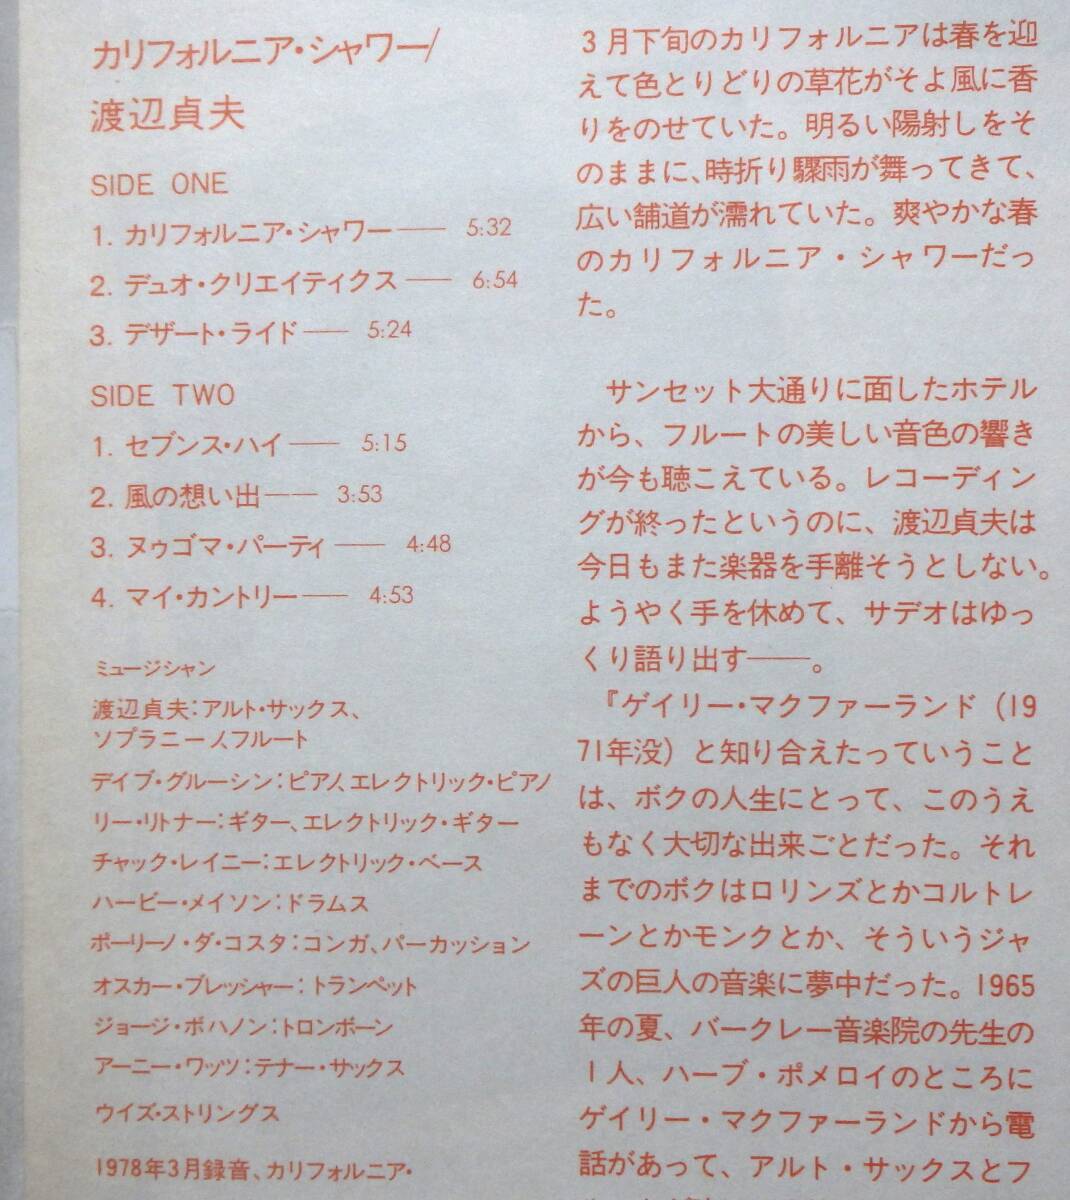 カリフォルニア・シャワー/
渡辺貞夫
SIDE ONE
1. カリフォルニア・シャワー—— 5:32
2. デュオ・クリエイティクス—— 6:54
3. デザート・ライド—— 5:24
SIDE TWO
1. セブンス・ハイ—— 5:15
2. 風の想い出—— 3:53
3. ヌゥゴマ・パーティ—— 4:48
4. マイ・カントリー—— 4:53
ミュージシャン
渡辺貞夫：アルト・サックス、
ソプラニーノ、フルート
デイブ・グルーシン：ピアノ、エレクトリック・ピアノ
リー・リトナー：ギター、エレクトリック・ギター
チャック・レイニー：エレクトリック・ベース
ハービー・メイソン：ドラムス
ポーリーノ・ダ・コスタ：コンガ、パーカッション
オスカー・ブレッシャー：トランペット
ジョージ・ボハノン：トロンボーン
アーニー・ワッツ：テナー・サックス
ウイズ・ストリングス
1978年3月録音、カリフォルニア・
3月下旬のカリフォルニアは春を迎
えて色とりどりの草花がそよ風に香
りをのせていた。明るい陽射しをそ
のままに、時折り驟雨が舞ってきて、
広い舗道が濡れていた。爽やかな春
のカリフォルニア・シャワーだっ
た。
サンセット大通りに面したホテル
から、フルートの美しい音色の響き
が今も聴こえている。レコーディン
グが終ったというのに、渡辺貞夫は
今日もまた楽器を手離そうとしない。
ようやく手を休めて、サデオはゆっ
くり語り出す——。
『ゲイリー・マクファーランド（19
71年没）と知り合えたっていうこと
は、ボクの人生にとって、このうえ
もなく大切な出来ごとだった。それ
までのボクはロリンズとかコルトレ
ーンとかモンクとか、そういうジャ
ズの巨人の音楽に夢中だった。1965
年の夏、バークレー音楽院の先生の
1人、ハーブ・ポメロイのところに
ゲイリー・マクファーランドから電
話があって、アルト・サックスとフ